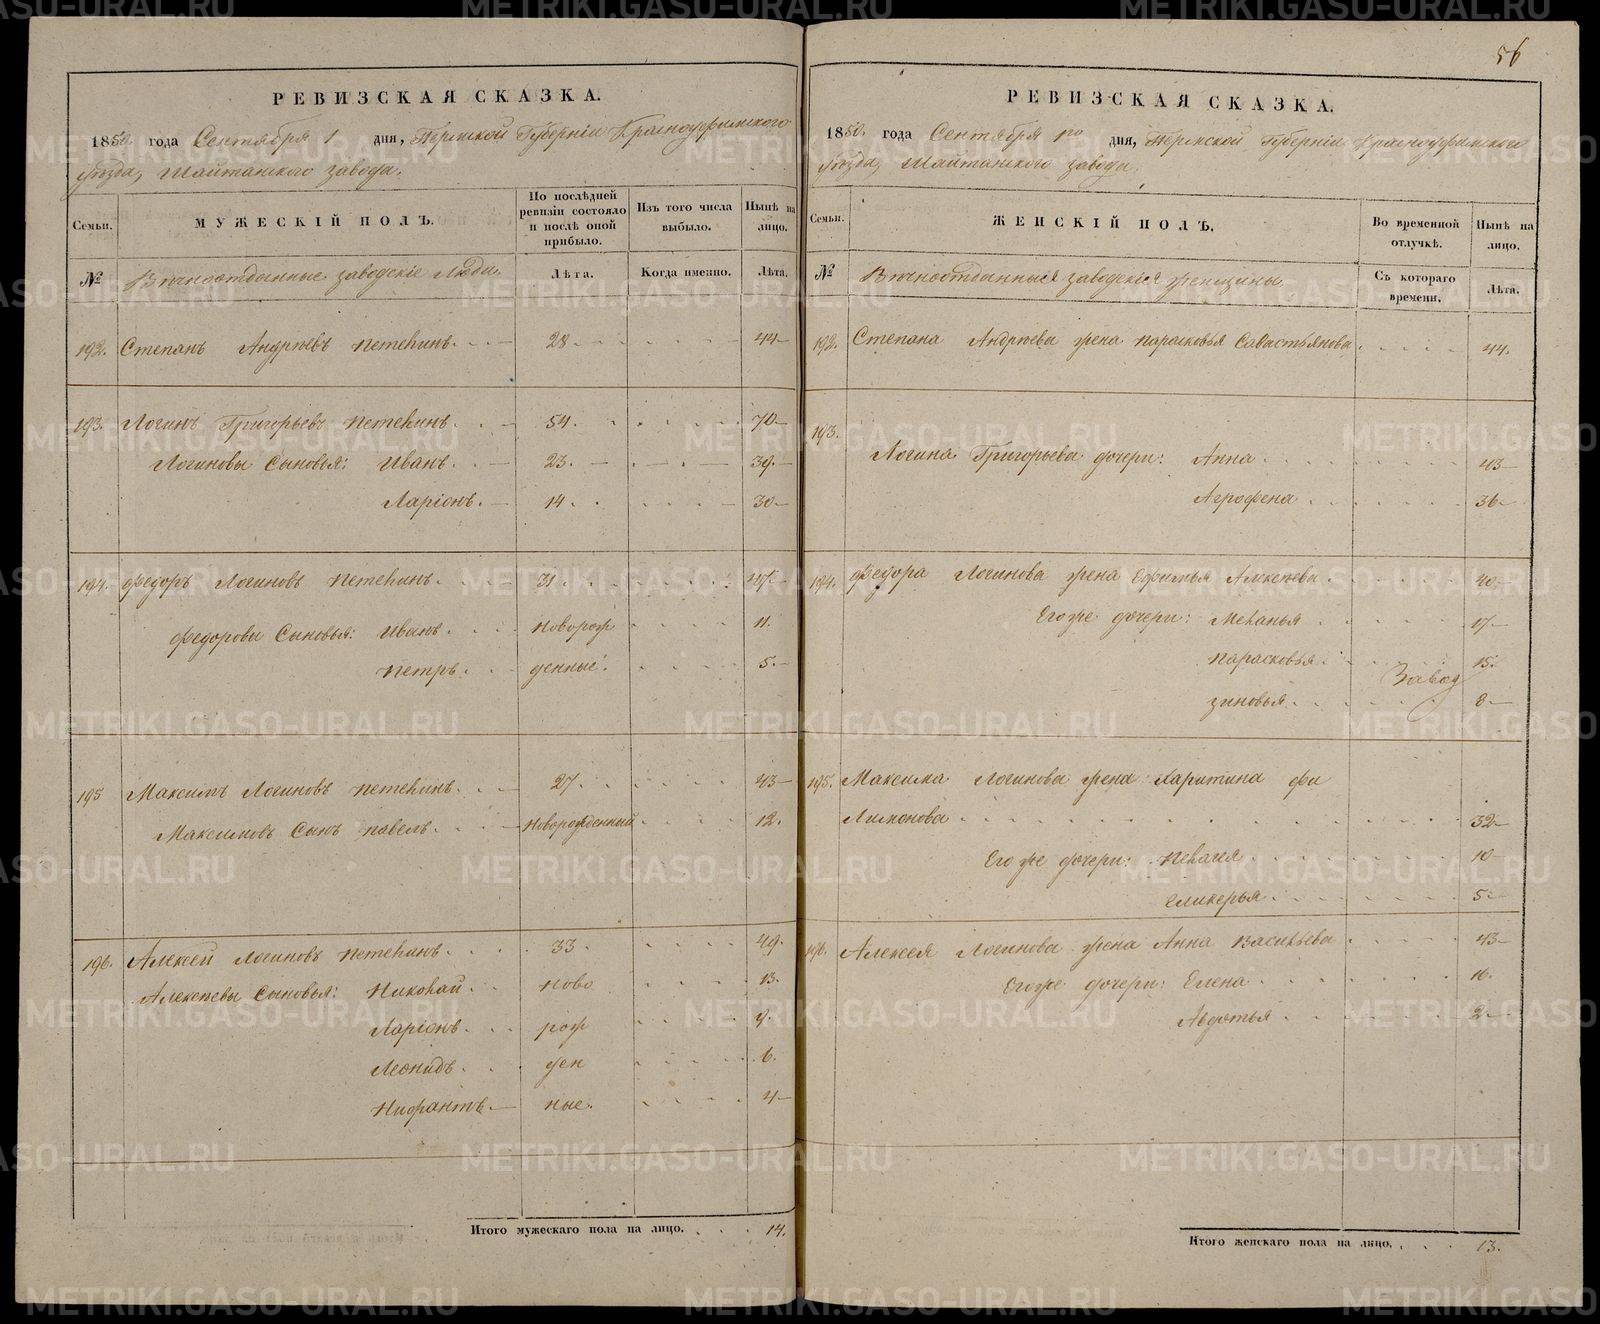 56
РЕВИЗСКАЯ СКАЗКА.
1850. года Сентября 1 дня, Пермской Губерніи Красноуфимского
уезда, Шайтанского завода.
Семьи.
МУЖЕСКІЙ ПОЛЪ.
По послѣдней ревизіи состояло и послѣ оной прибыло.
Изъ того числа выбыло.
Нынѣ на лицо.
№
Вѣчноотданные заводскіе Люди.
Лѣта.
Когда именно.
Лѣта.
192. Степанъ Андрѣевъ Петелинъ. 28 44
193. Логинъ Григорьевъ Петелинъ. 54. 70
Логиновы Сыновья: Иванъ. 23. 39.
Ларіонъ. 14. 30
194. Федоръ Логиновъ Петелинъ. 31. 47.
Федоровы Сыновья: Иванъ. Новорож 11.
Петръ. денные. 5.
195 Максимъ Логиновъ Петелинъ. 27. 43
Максимовъ Сынъ Павелъ. Новорожденный 12.
196. Алексей Логиновъ Петелинъ. 33. 49.
Алексѣевы Сыновья: Николай. Ново 13.
Ларіонъ. рож 9.
Леонидъ. ден 6.
Нифантъ. ные. 4
Итого мужескаго пола на лицо. 14.
РЕВИЗСКАЯ СКАЗКА.
1850. года Сентября 1го дня, Пермской Губерніи Красноуфимского
уезда, Шайтанского завода.
Семьи.
ЖЕНСКІЙ ПОЛЪ.
Во временной отлучкѣ.
Нынѣ на лицо.
№
Вѣчноотданныя заводскія женщины.
Съ котораго времени.
Лѣта.
192. Степана Андрѣева жена Парасковья Савастьянова. 44.
193.
Логина Григорьева дочери: Анна 43
Агрофена 36
194. Федора Логинова жена Ефимья Алексѣева 40
Его же дочери: Меланья 17
Парасковья. 15.
Завод
Зиновья 8
195. Максима Логинова жена Харитина Фи
Лимонова 32
Его же дочери: Пелагея 10
Гликерья 5.
196. Алексея Логинова жена Анна Васильева 43
Его же дочери: Елена 16.
Авдотья 2
Итого женскаго пола на лицо. 13.
METRIKI.GASO-URAL.RU